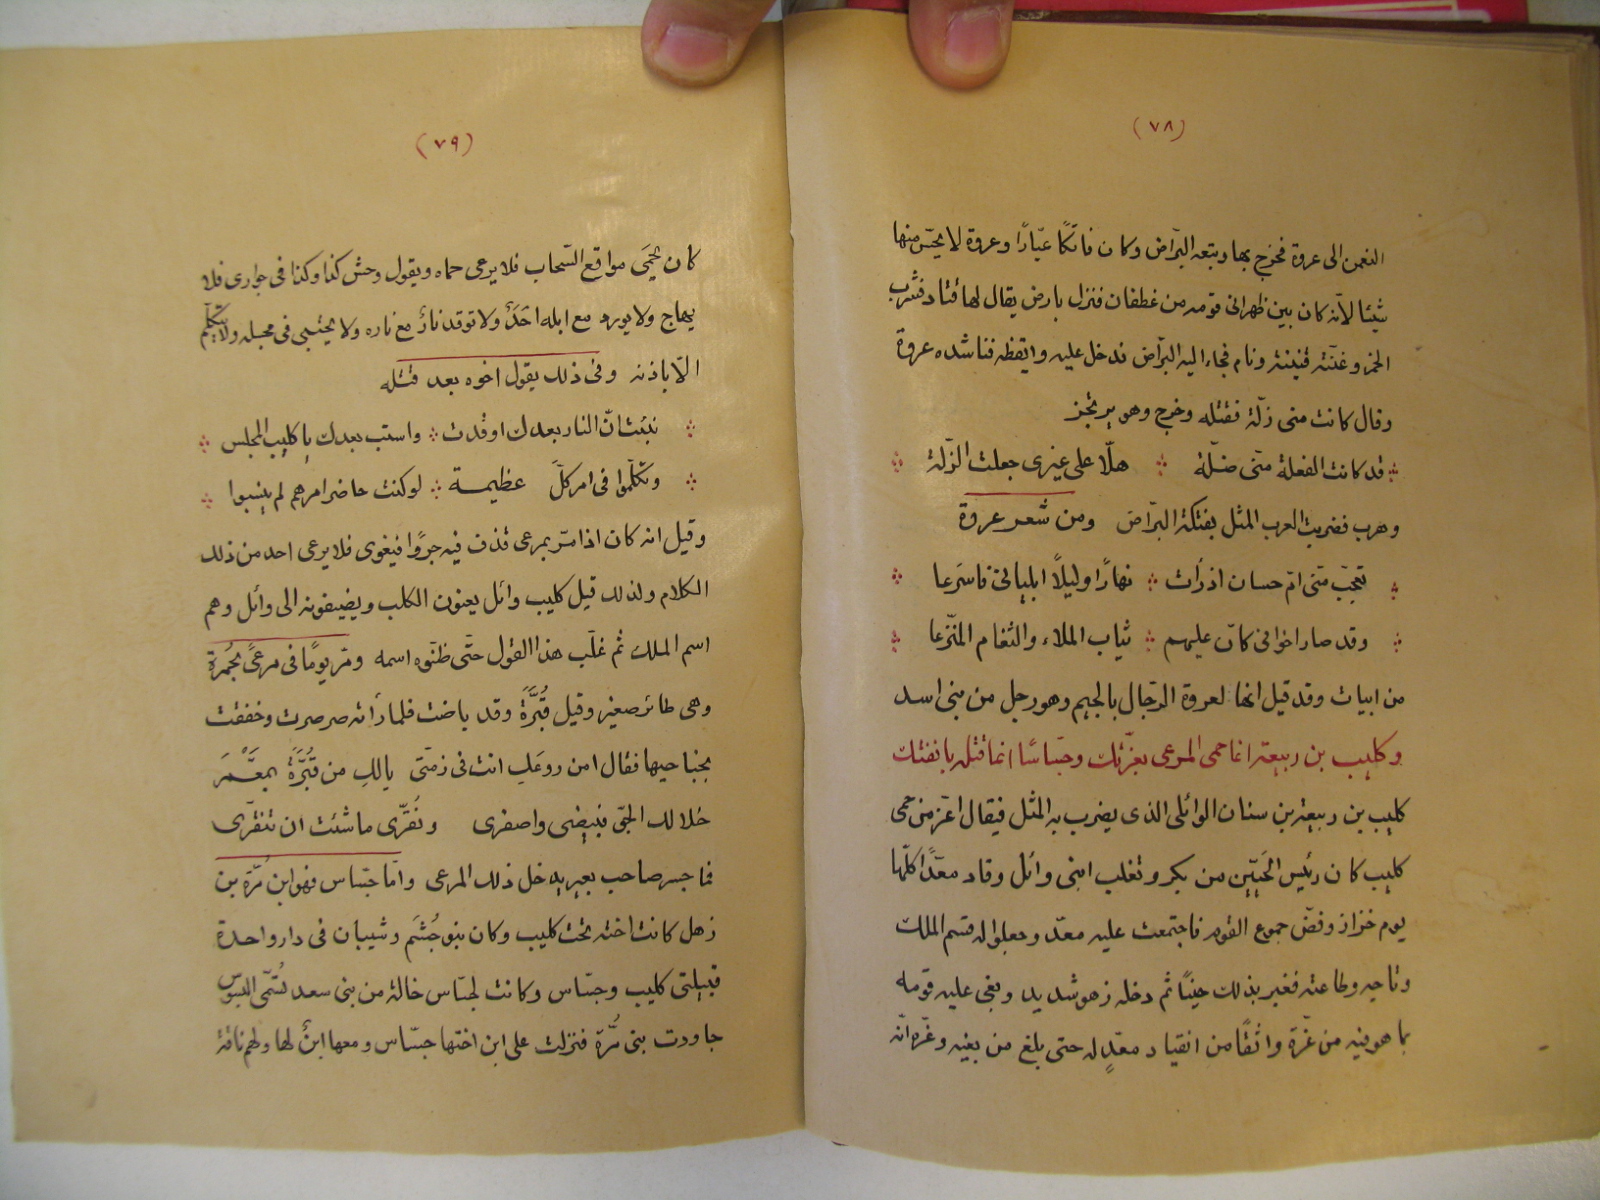 (٧٨)
النعمن الى عروة فخرج بها وتبعه البرّاض وكان فاتكًا عيّارًا وعروة لا يحسّ منها
شيئا لأنه كان بين ظهرانى قومه من غطفان فنزل بارض يقال لها فتاد فشرب
الخمر وغنّته قينته ونام فجاء اليه البرّاض فدخل عليه وايقظه فناشده عروة
وقال كانت منى زلّة فقتله وخرج وهو يرتجز
قد كانت الفعلة منّى ضلّة هلّا على غيرى جعلت الزلّة
وهرب فضربت العرب المثل بفتكة البرّاض ومن شعر عروة
تعجّب منّى امّ حسان اذ رأت نهارًا وليلًا ابليانى فاسرعا
وقد صار اخوانى كانّ عليهم ثياب الملاء والثغام المنزّعا
من ابيات وقد قيل انها لعروة الرحّال بالجيم وهو رجل من بنى اسد
وكليب بن ربيعة انما حمى المرعى بعزّتك وجسّاسًا انما قتله بانفتك
كليب بن ربيعة بن سنان الوائلى الذى يضرب به المثل فيقال اعزّ من حمى
كليب كان رئيس الحيّين من بكر وتغلب ابنى وائل وقاد معدًّا كلّها
يوم خزاز وفضّ جموع القوم فاجتمعت عليه معدّ وجعلوا له قسم الملك
وتاجه وطاعته فغبر بذلك حينًا ثم دخله زهو شديد وبغى عليه قومه
بما هو فيه من عزّة واثقًا من انقياد معدٍّ له حتى بلغ من بغيه وغرّه انّه
(٧٩)
كان يحمَى مواقع السّحاب فلا يرعى حماه ويقول وحش كذا وكذا فى جوارى فلا
يهاج ولا يورد مع ابله احَدٌ ولا توقد نارٌ مع ناره ولا يحتبى فى مجلسه ولا يتكلّم
الّا باذنه وفى ذلك يقول اخوه بعد قتله
نبئت انّ النار بعدك اوقدت واستب بعدك يا كليب المجلس
وتكلّموا فى امر كلّ عظيمة لو كنت حاضر امرهم لم ينبسوا
وقيل انه كان اذا مرّ بمرعى قذف فيه جروًا فيعوى فلا يرعى احد من ذلك
الكلام ولذلك قيل كليب وائل يعنون الكلب ويضيفونه الى وائل وهم
اسم الملك ثم غلّب هذا القول حتّى ظنّوه اسمه ومرّ يومًا فى مرعًى بحُمرة
وهى طائر صغير وقيل قُبَّرَةً وقد باضت فلما رأته صرصرت وخفقت
بجناحيها فقال امن روعَكِ انت فى ذمتى يالكِ من قُبَّرَةٍ بمعَْمَر
خلا لك الجوّ فبيضى واصفرى ونُقّرى ما شئت ان تنقّرى
فما جسر صاحب بعير يدخل ذلك المرعى وامّا جسّاس فهو ابن مُرّة بن
زهل كانت اخته تحت كليب وكان بنو جُشَم وشيبان فى دار واحدة
قبيلتى كليب وجسّاس وكانت لجسّاس خالة من بنى سعد تُسمّى البسوس
جاورت بنى مُرّة فنزلت على ابن اختها جسّاس ومعها ابنٌ لها ولهم ناقة